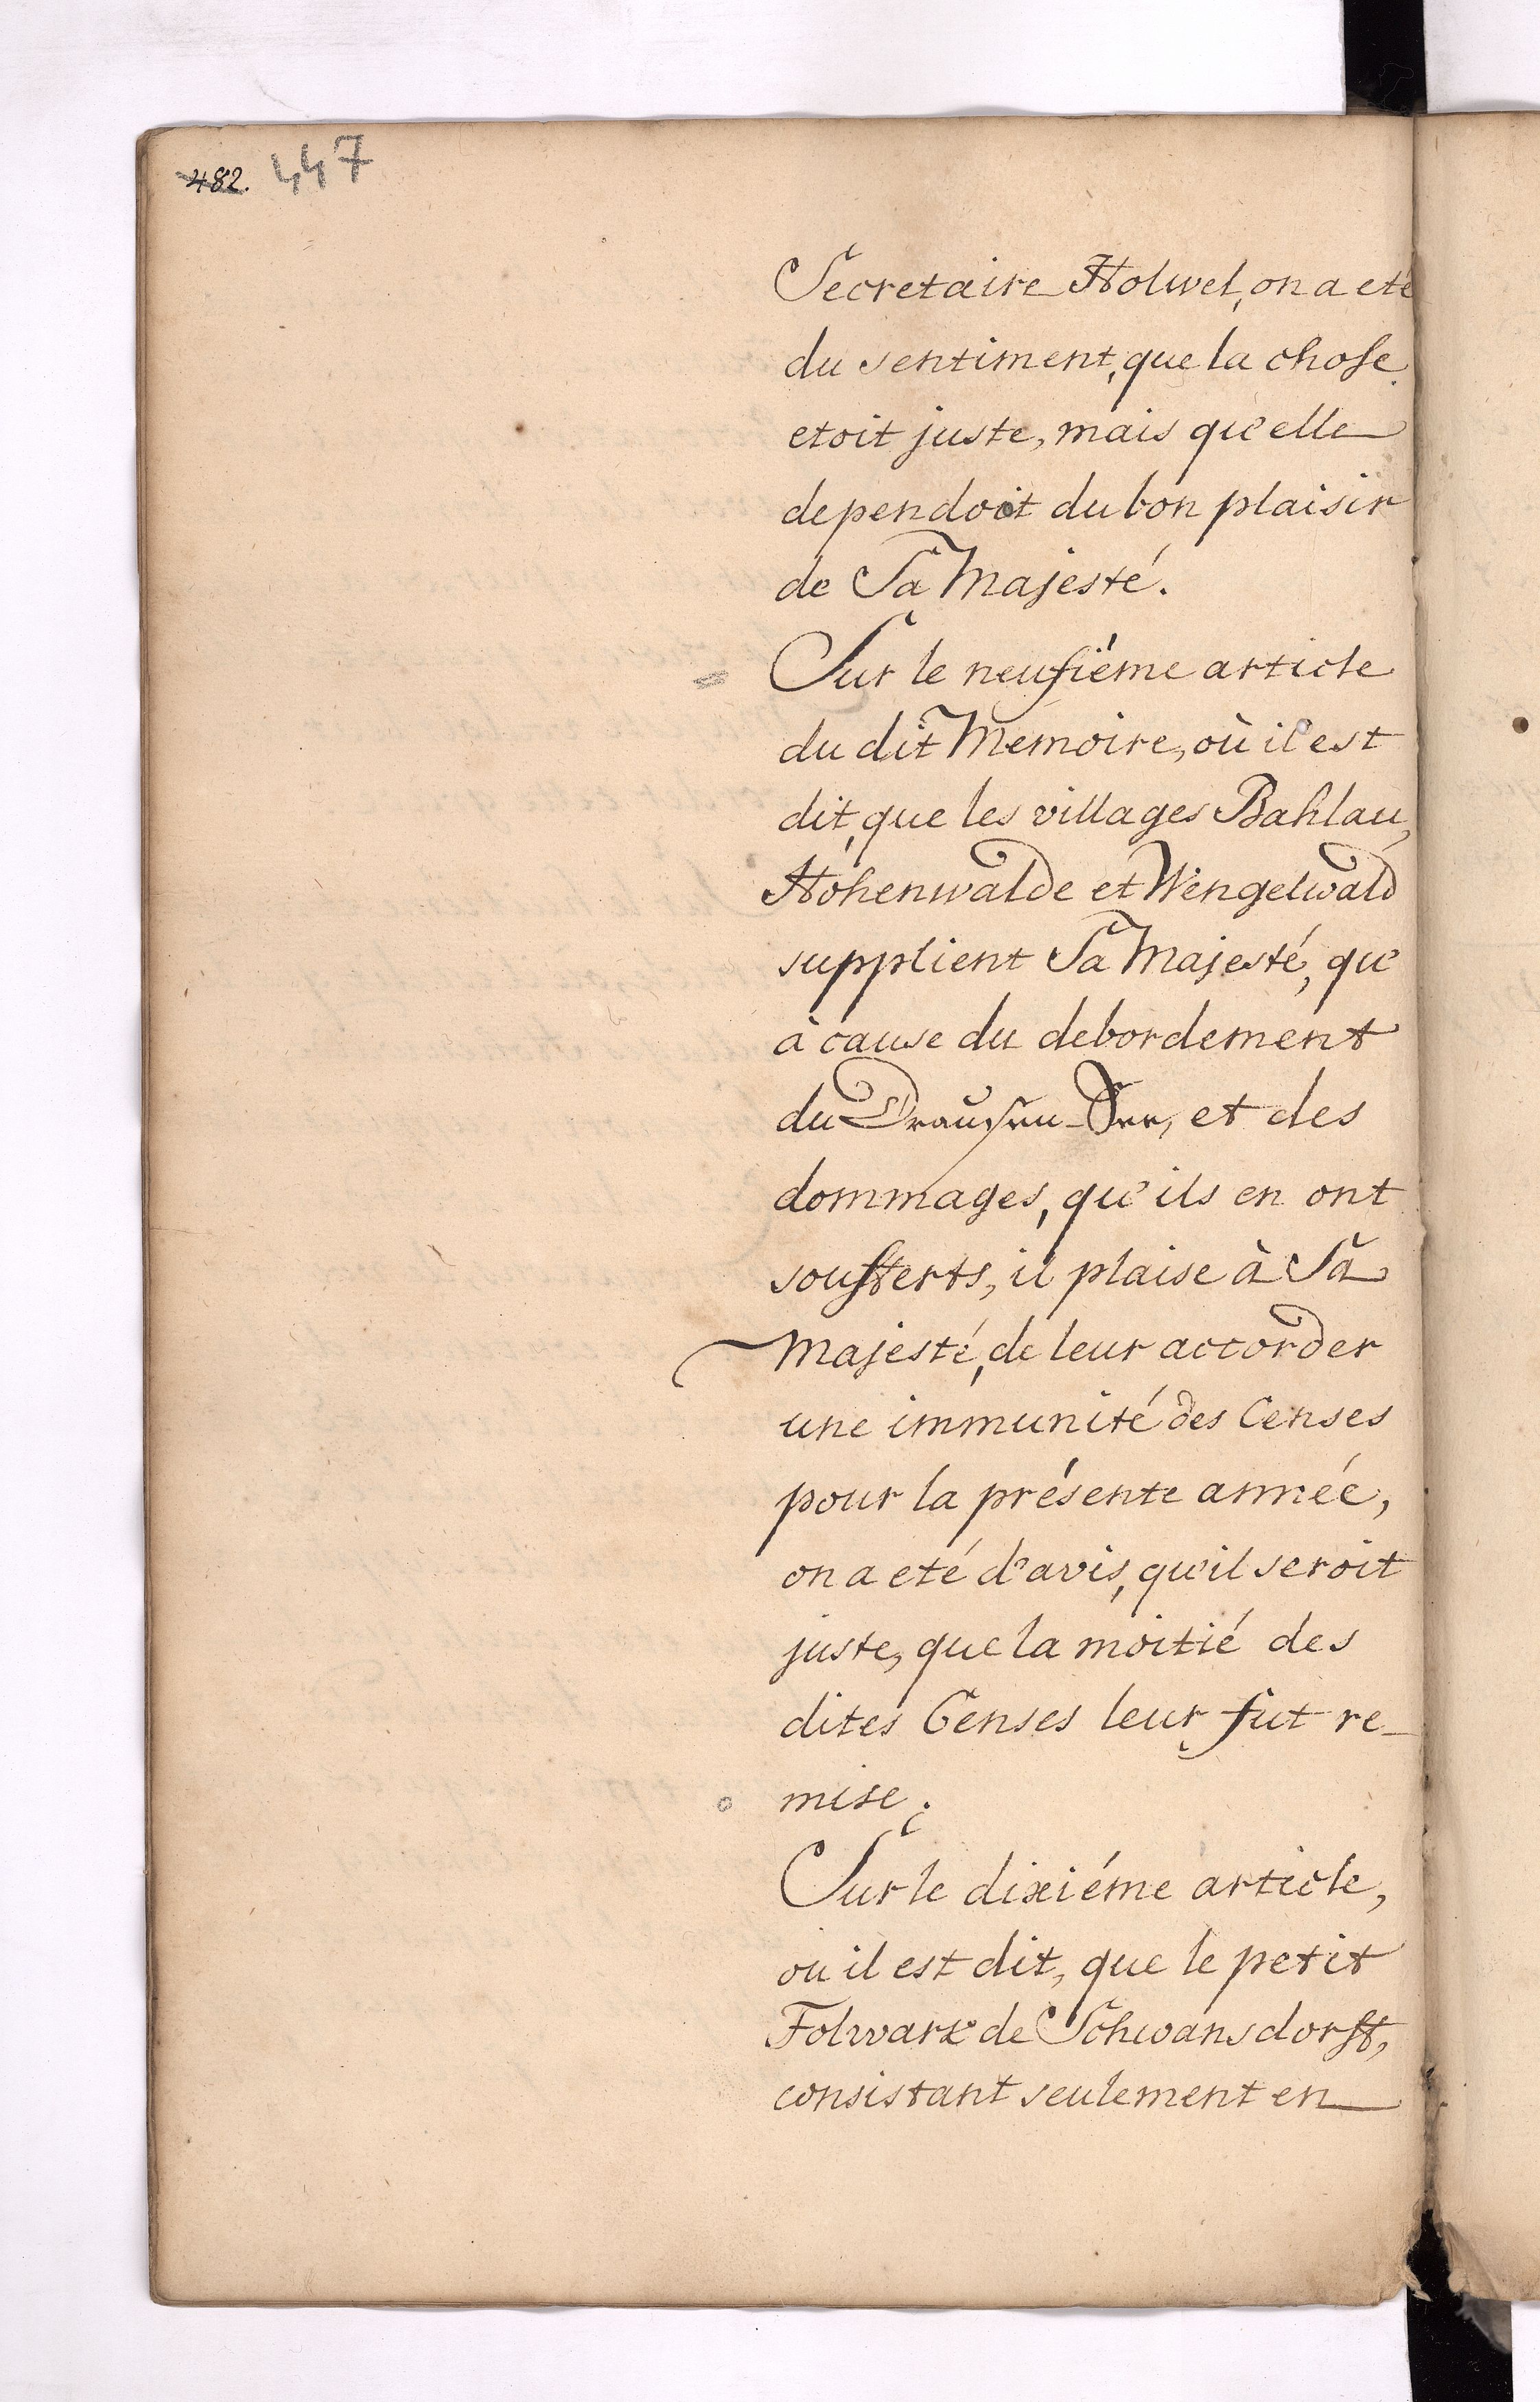 482. 447
Secretaire Holwel, on a eté
du sentiment, que la chose
etoit juste, mais qu'elle
dependoit du bon plaisir
de Sa Majesté.
Sur le neufiéme article
du dit Memoire, où il est
dit, que les villages Bahlau,
Hohenwalde et Wengelwald
supplient Sa Majesté, qu'
à cause du debordement
du Drausen-See, et des
dommages, qu'ils en ont
soufferts, il plaise à Sa
Majesté, de leur accorder
une immunité des Censes
pour la présente année,
on a eté d'avis, qu'il seroit
juste, que la moitié des
dites Censes leur fut re-
mise.
Sur le dixiéme article,
ou il est dit, que le petit
Folwark de Schwansdorff,
consistant seulement en